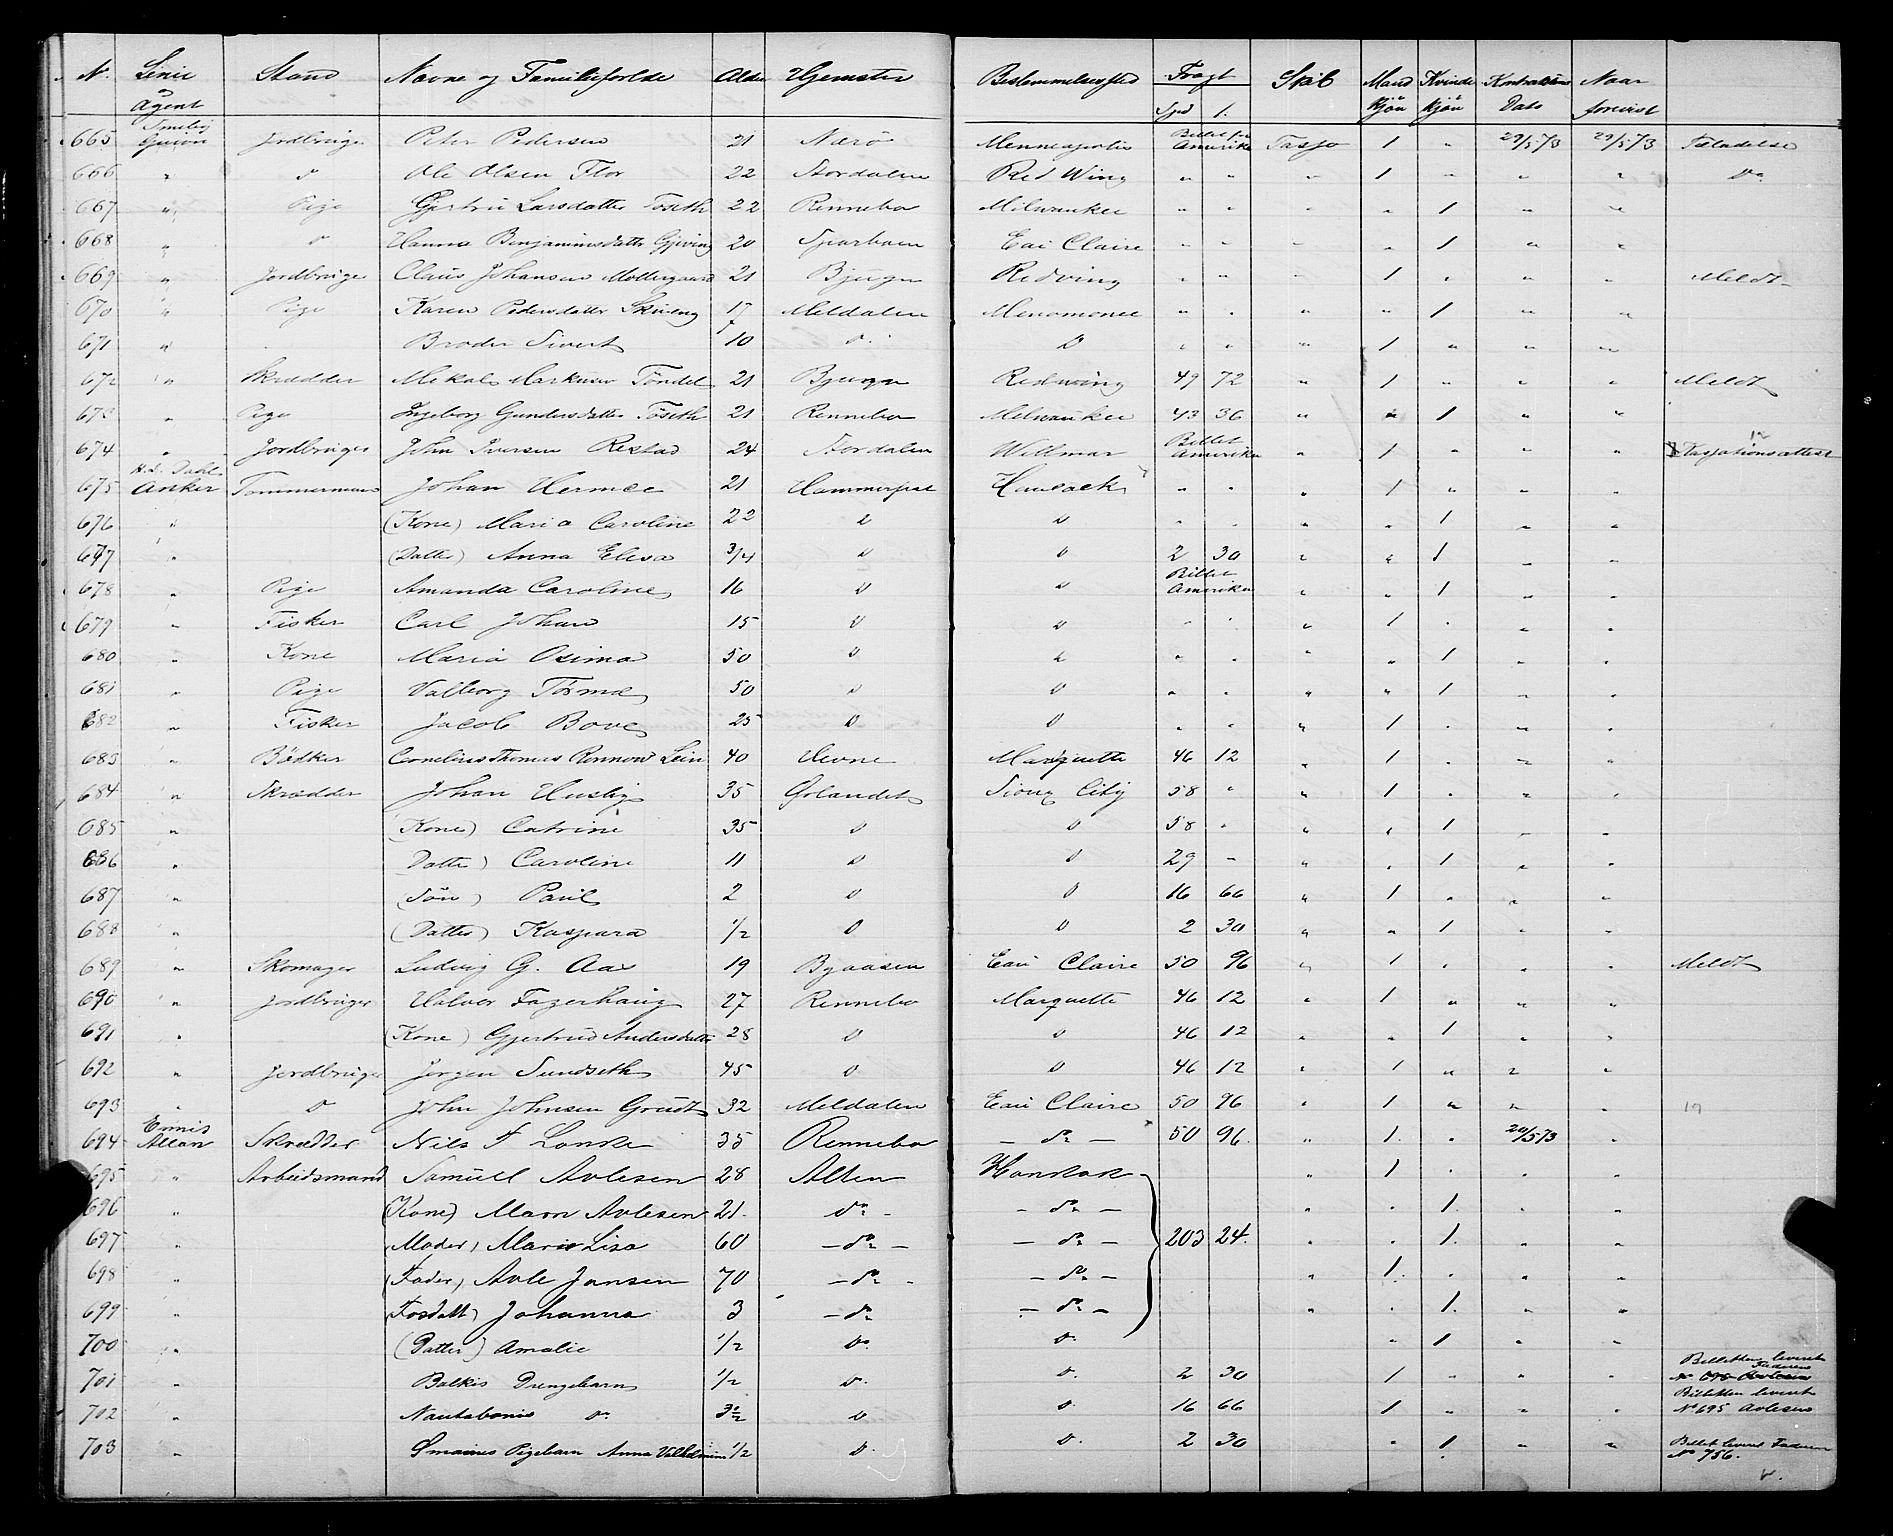 N. Linie & Agent Stand Navne og Familieforholde Alder Hjemster Bestemmelsessted Fragt Spd 1. Skib Mand kjøn Kvinde kjøn Kontraktens Dato Naar forevist
665 Guion Jordbruger Peter Pedersen 21 Nærö Menneapolis Billet fra Amerika Tasso 1 " 29/5 73 29/5 73 Tilladelse
666 " D Ole Olsen Flor 22 Stordalen Red Wing " " " 1 " " " Do
667 " Pige Gjertru Larsdatter Töseth 22 Rennebo Milwaukee " " " " 1 " "
668 " D Hanna Benjaminsdatter Gjeving 20 Sparboen Eau Claire " " " " 1 " "
669 " Jordbruger Claus Johansen Möllergaard 21 Bjugn Redving " " " 1 " " " Meldt
670 " Pige Karen Pedersdatter Skjeeng 17 Meldalen Menomonee " " " " 1 " "
671 " Broder Sivert 10 D D " " " 1 " " "
672 " Skrædder Mikal Markusen Töndel 21 Bjugn Redwing 49 72 " 1 " " " Meldt
673 " Pige Ingeborg Gundersdatter Töseth 21 Rennebo Milwaukee 43 36 " " 1 " "
674 " Jordbruger John Iversen Restad 24 Stordalen Willmar Billet Amerika " 1 " " "
H. L. Dahl
675 Anker Tømmermand Johan Hermee 21 Hammerfest Hancock " " " 1 " " "
676 " (Kone) Maria Caroline 22 D D " " " " 1 " "
677 " (Datter) Anna Elesa 3/4 D D 2 30 " " 1 " "
678 " Pige Amanda Caroline 16 D D Billet Amerika " " 1 " "
679 " Fisker Carl Johan 15 D D " " " 1 " " "
680 " Kone Maria Osima 50 D D " " " " 1 " "
681 " Pige Valborg Törmæ 50 D D " " " " 1 " "
682 " Fisker Jacob Bove 25 D D " " " 1 " " "
683 " Bödker Cornelius Thomas Rönnow Lein 40 Hevne Marquette 46 12 " 1 " " "
684 " Skrædder Johan Husby 35 Ørlandet Sioux City 58 " " 1 " " "
685 " (Kone) Catrine 35 D D 58 " " " 1 " "
686 " Datter) Caroline 11 D D 29 " " " 1 " "
687 " (Sön) Paul 2 D D 16 66 " 1 " " "
688 " (Datter) Kaspara 1/2 D D 2 30 " " 1 " "
689 " Skomager Ludvig G. Aas 19 Byaasen Eau Claire 50 96 " 1 " " " Meldt
690 " Jordbruger Halvor Fagerhaug 27 Rennebo Marquette 46 12 " 1 " " "
691 " (Kone) Gjertrud Andersdatter 28 D D 46 12 " " 1 " "
692 " Jordbruger Jörgen Sundseth 45 D D 46 12 " 1 " " "
693 " D John Johnsen Grudt 32 Meldalen Eau Claire 50 96 " 1 " " " 19
694 Allan Skrædder Nils F Lonke 35 Rennebo - do - 50 96. " 1. " 20/5 73 "
695 " Arbeidsmand Samuel Avlesen 28 Alten Hankok " 1 " " "
696 " (Kone) Maren Avlesen 21. do - - do - " " 1. " "
697 " (Moder) Maria Lisa 60 - do - - do - 203 24. " " 1. " "
698 " (Fader) Avle Jansen 70 - do - - do - " 1. " " "
699 " Johanna 3 - do - do - " " 1. " "
700 " (Datter) Amalie 1/2 Do D. " 1 " "
701 " Balkis Drengebarn 1/2 D. D. 2 30 1 " " " Billetten leveret Faderen
702 " D. 3 1/2 D D. 16 66 1 " " " Billetten leveret No 695 Avlesen
703 " Pigebarn Anna 1/2 D. D. 2 30 " 1 " " Billet leveret Faderen No 756.